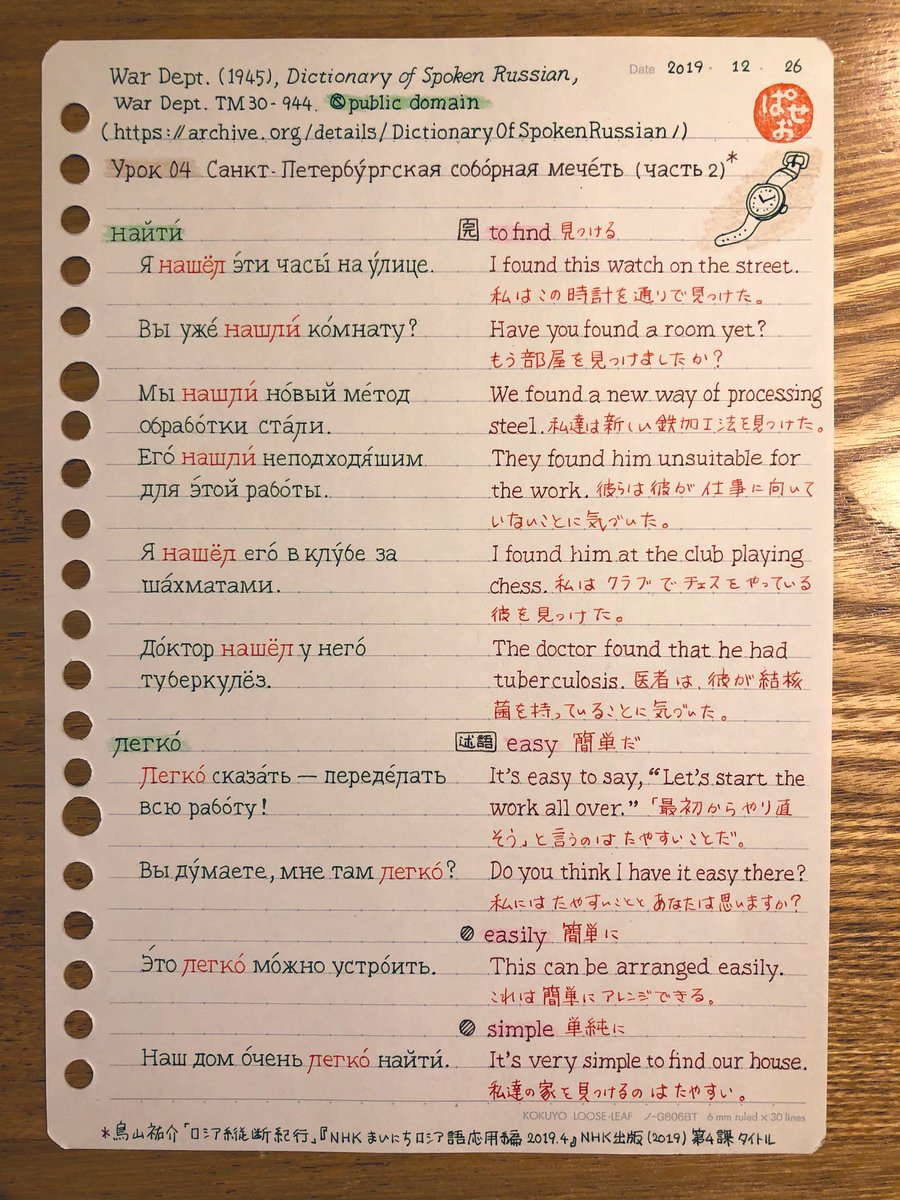 War Dept. (1945), Dictionary of Spoken Russian,
Date 2019 · 12 · 26
War Dept. TM 30-944. public domain
(https://archive.org/details/DictionaryOfSpokenRussian/)
ぱせお
Урок 04 Санкт-Петербу́ргская собо́рная мече́ть (часть 2)*
найти́ 完 to find 見つける
Я нашёл э́ти часы́ на у́лице. I found this watch on the street.
私はこの時計を通りで見つけた。
Вы уже́ нашли́ ко́мнату? Have you found a room yet?
もう部屋を見つけましたか?
Мы нашли́ но́вый ме́тод We found a new way of processing
обрабо́тки ста́ли. steel. 私達は新しい鉄加工法を見つけた。
Его́ нашли́ неподходя́шим They found him unsuitable for
для э́той рабо́ты. the work. 彼らは彼が仕事に向いて
いないことに気づいた。
Я нашёл его́ в клу́бе за I found him at the club playing
ша́хматами. chess. 私はクラブでチェスをやっている
彼を見つけた。
До́ктор нашёл у него́ The doctor found that he had
туберкулёз. tuberculosis. 医者は、彼が結核
菌を持っていることに気づいた。
легко́ 述語 easy 簡単だ
Легко́ сказа́ть — переде́лать It's easy to say, "Let's start the
всю рабо́ту! work all over." 「最初からやり直
そう」と言うのはたやすいことだ。
Вы ду́маете, мне там легко́? Do you think I have it easy there?
私にはたやすいことと あなたは思いますか?
easily 簡単に
Э́то легко́ мо́жно устро́ить. This can be arranged easily.
これは簡単にアレンジできる。
simple 単純に
Наш дом о́чень легко́ найти́. It's very simple to find our house.
私達の家を見つけるのはたやすい。
KOKUYO LOOSE-LEAF ノ-G806BT 6 mm ruled × 30 lines
*鳥山祐介「ロシア縦断紀行」『NHKまいにちロシア語応用編 2019.4』NHK出版(2019) 第4課タイトル